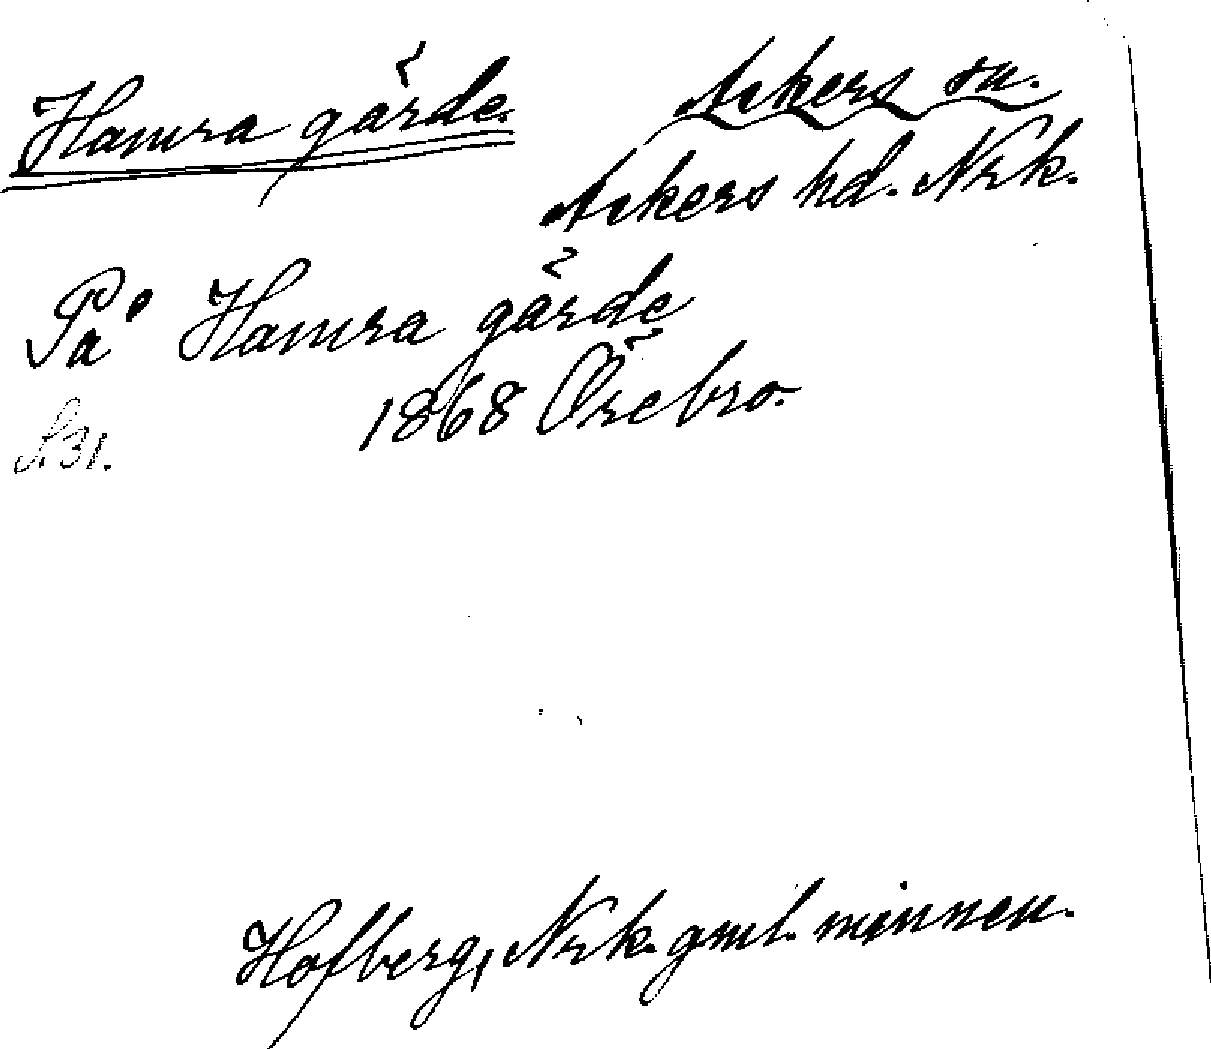 Hamra gärde. Ackers sn.
Ackers hd. Nrk.
På Hamra gärde
1868 Örebro.
S. 31.
Hofberg, Nrk. gml. minnen.